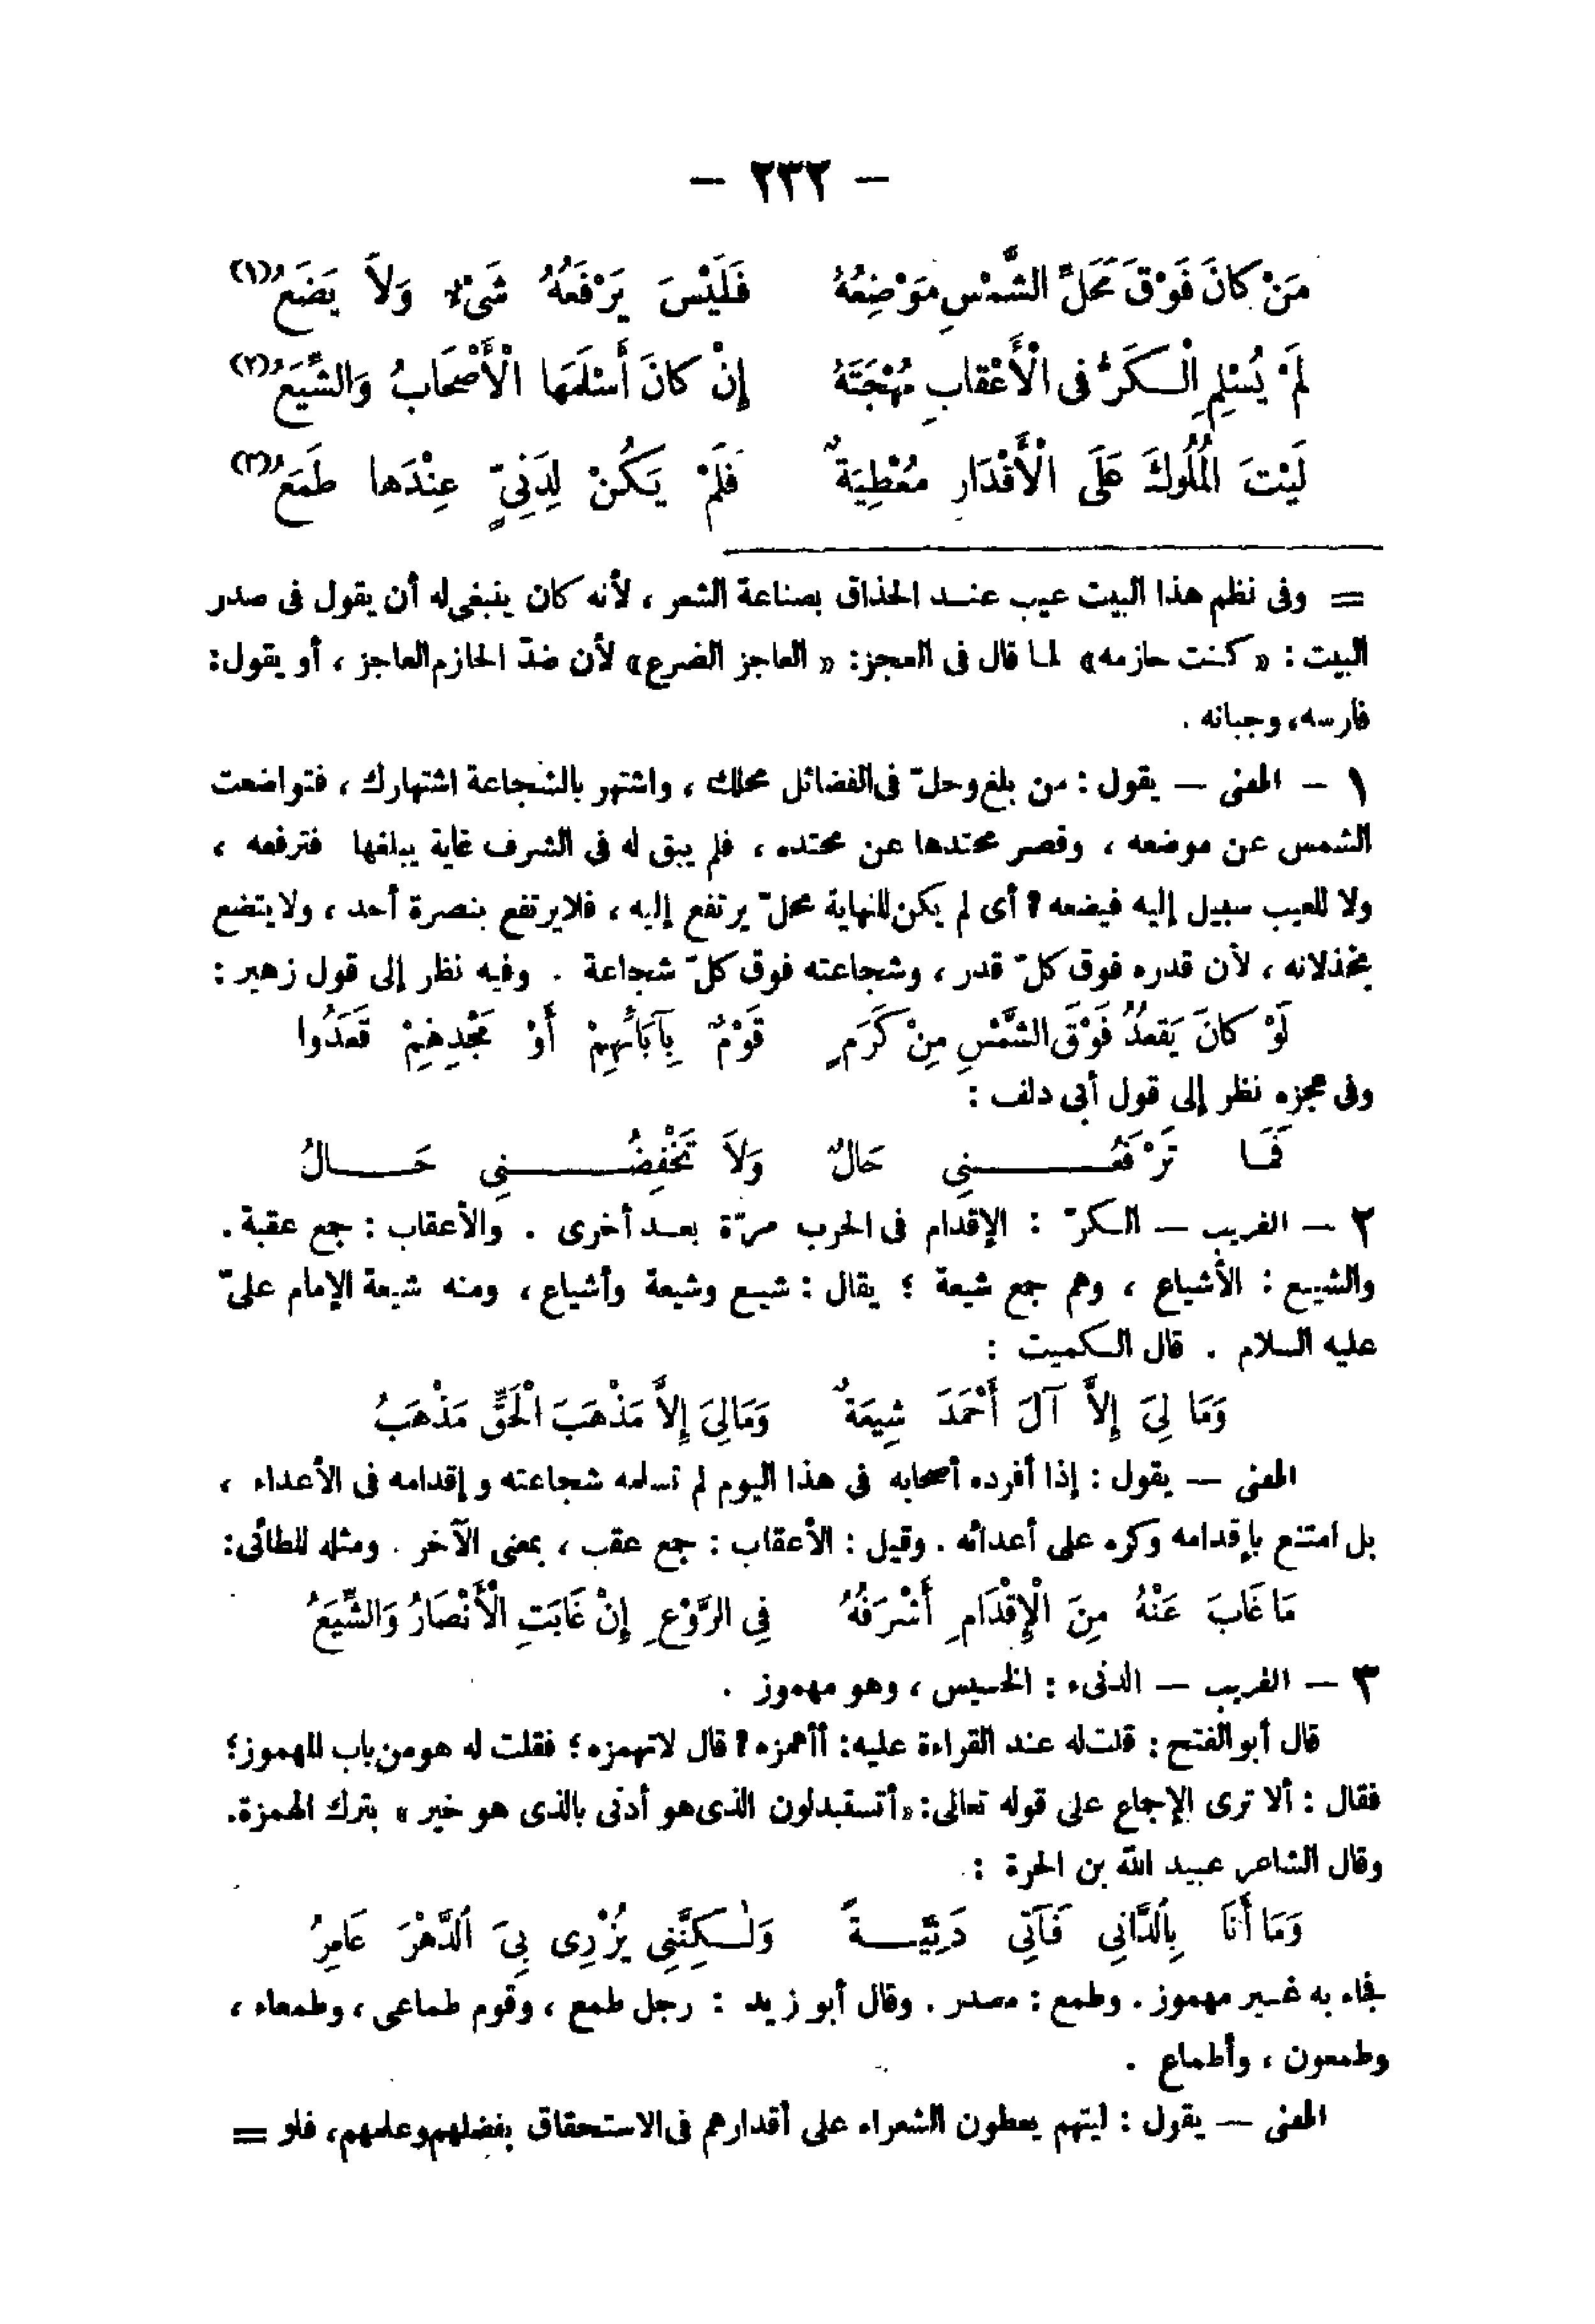 — ٢٣٢ —
مَنْ كانَ فَوْقَ مَحَلِّ الشَّمْسِ مَوْضِعُهُ فَلَيْسَ يَرْفَعُهُ شَىْءٌ وَلاَ يَضَعُ(١)
لَمْ يُسْلِمِ الْكَرُّ فى الْأَعْقابِ مُهْجَتَهُ إِنْ كانَ أَسْلَمَها الْأَصْحَابُ وَالشِّيَعُ(٢)
لَيْتَ الْمُلُوكَ عَلَى الْأَقْدَارِ مُعْطِيَةٌ فَلَمْ يَكُنْ لِدَنِىٍّ عِنْدَها طَمَعُ(٣)
= وفى نظم هذا البيت عيب عند الحذاق بصناعة الشعر ، لأنه كان ينبغى له أن يقول فى صدر
البيت : « كنت حازمه» لما قال فى العجز: « العاجز الضرع» لأن ضدّ الحازم العاجز ، أو يقول:
فارسه، وجبانه .
١ — المعنى — يقول : من بلغ وحلّ فى الفضائل محلك ، واشتهر بالشجاعة اشتهارك ، فتواضعت
الشمس عن موضعه ، وقصر محتدها عن محتده ، فلم يبق له فى الشرف غاية يبلغها فترفعه ،
ولا للعيب سبيل إليه فيضعه ؟ أى لم يكن للنهاية محلّ يرتفع إليه ، فلا يرتفع بنصرة أحد ، ولا يتضع
بخذلانه ، لأن قدره فوق كلّ قدر ، وشجاعته فوق كلّ شجاعة . وفيه نظر إلى قول زهير :
لَوْ كانَ يَقْعُدُ فَوْقَ الشَّمْسِ مِنْ كَرَمٍ قَوْمٌ بِآبَائهِمْ أَوْ مَجْدِهِمْ قَعَدُوا
وفى عجزه نظر إلى قول أبى دلف :
فَمَا تَرْفَعُنِى حَالٌ وَلاَ تَخْفِضُنِى حَالُ
٢ — الغريب — الكرّ : الإقدام فى الحرب مرّة بعد أخرى . والأعقاب : جمع عقبة .
والشيع : الأشياع ، وهم جمع شيعة ؛ يقال : شيع وشيعة وأشياع ، ومنه شيعة الإمام علىّ
عليه السلام . قال الكميت :
وَمَا لِىَ إِلاَّ آلَ أَحْمَدَ شِيعَةٌ وَمَالِىَ إِلاَّ مَذْهَبَ الْحَقِّ مَذْهَبُ
المعنى — يقول : إذا أفرده أصحابه فى هذا اليوم لم تسلمه شجاعته و إقدامه فى الأعداء ،
بل امتنع بإقدامه وكره على أعدائه . وقيل : الأعقاب : جمع عقب ، بمعنى الآخر . ومثله للطائى:
مَا غَابَ عَنْهُ مِنَ الْإِقْدَامِ أَشْرَفُهُ فِى الرَّوْعِ إِنْ غَابَتِ الْأَنْصَارُ وَالشِّيَعُ
٣ — الغريب — الدنىء : الخسيس ، وهو مهموز .
قال أبو الفتح : قلت له عند القراءة عليه: أأهمزه ؟ قال لاتهمزه ؛ فقلت له هو من باب المهموز؛
فقال : ألا ترى الإجماع على قوله تعالى: «أتستبدلون الذى هو أدنى بالذى هو خير» بترك الهمزة.
وقال الشاعر عبيد الله بن الحرة :
وَمَا أَنَا بِالدَّانِى فَآتِى دَنِيَّةً وَلٰكِنَّنِى يُزْرِى بِىَ الدَّهْرَ عَامِرُ
فجاء به غير مهموز . وطمع : مصدر . وقال أبو زيد : رجل طمع ، وقوم طماعى ، وطمعاء ،
وطمعون ، وأطماع .
المعنى — يقول : ليتهم يعطون الشعراء على أقدارهم فى الاستحقاق بفضلهم وعلمهم، فلو =